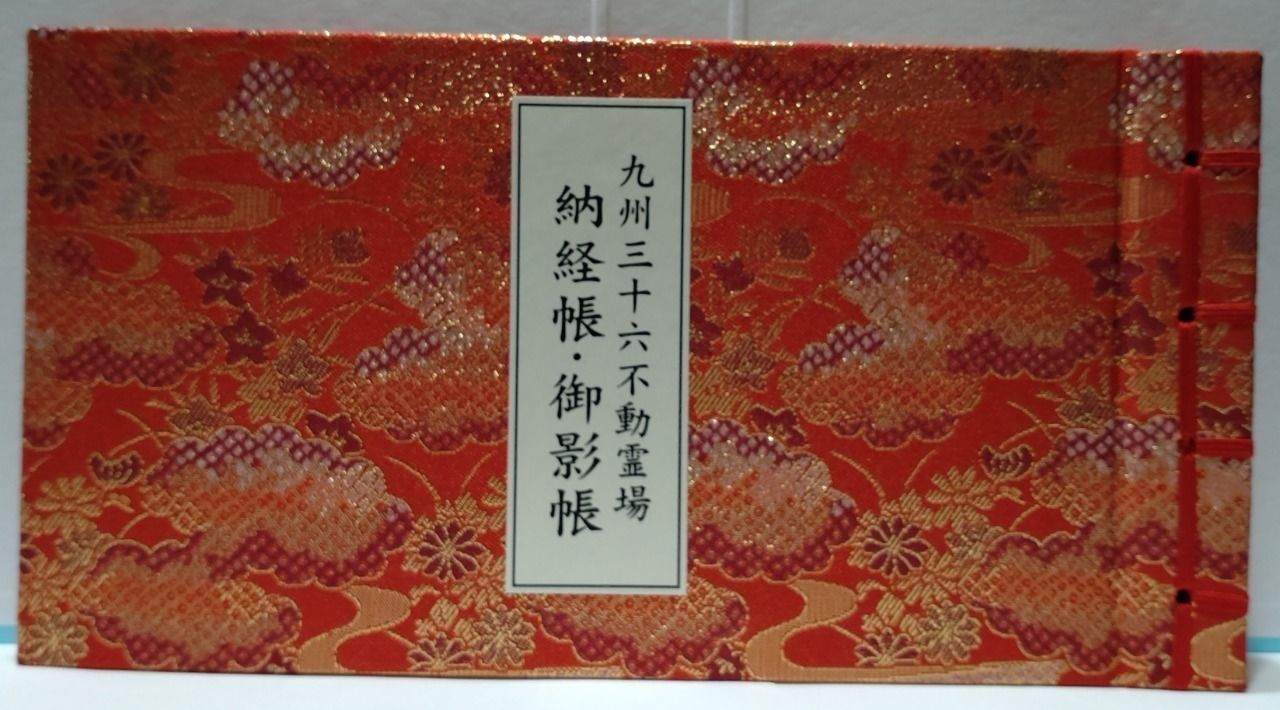 九州三十六不動霊場
納経帳・御影帳